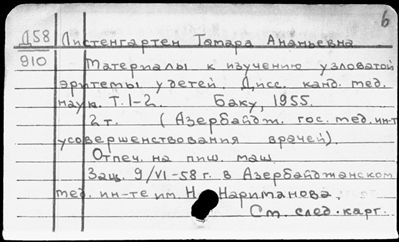 6
Д58 Листенгартен Тамара Ананьевна
910 Материалы к изучению узловатой
эритемы у детей. Дисс. канд. мед.
наук. Т.1-2. Баку, 1955.
2т. (Азербайдж. гос. мед. ин-т
усовершенствования врачей).
Отпеч. на пиш. маш.
Защ. 9/VI-58 г. в Азербайджанском
мед. ин-те им. Н. Нариманова.
См. след. карт.